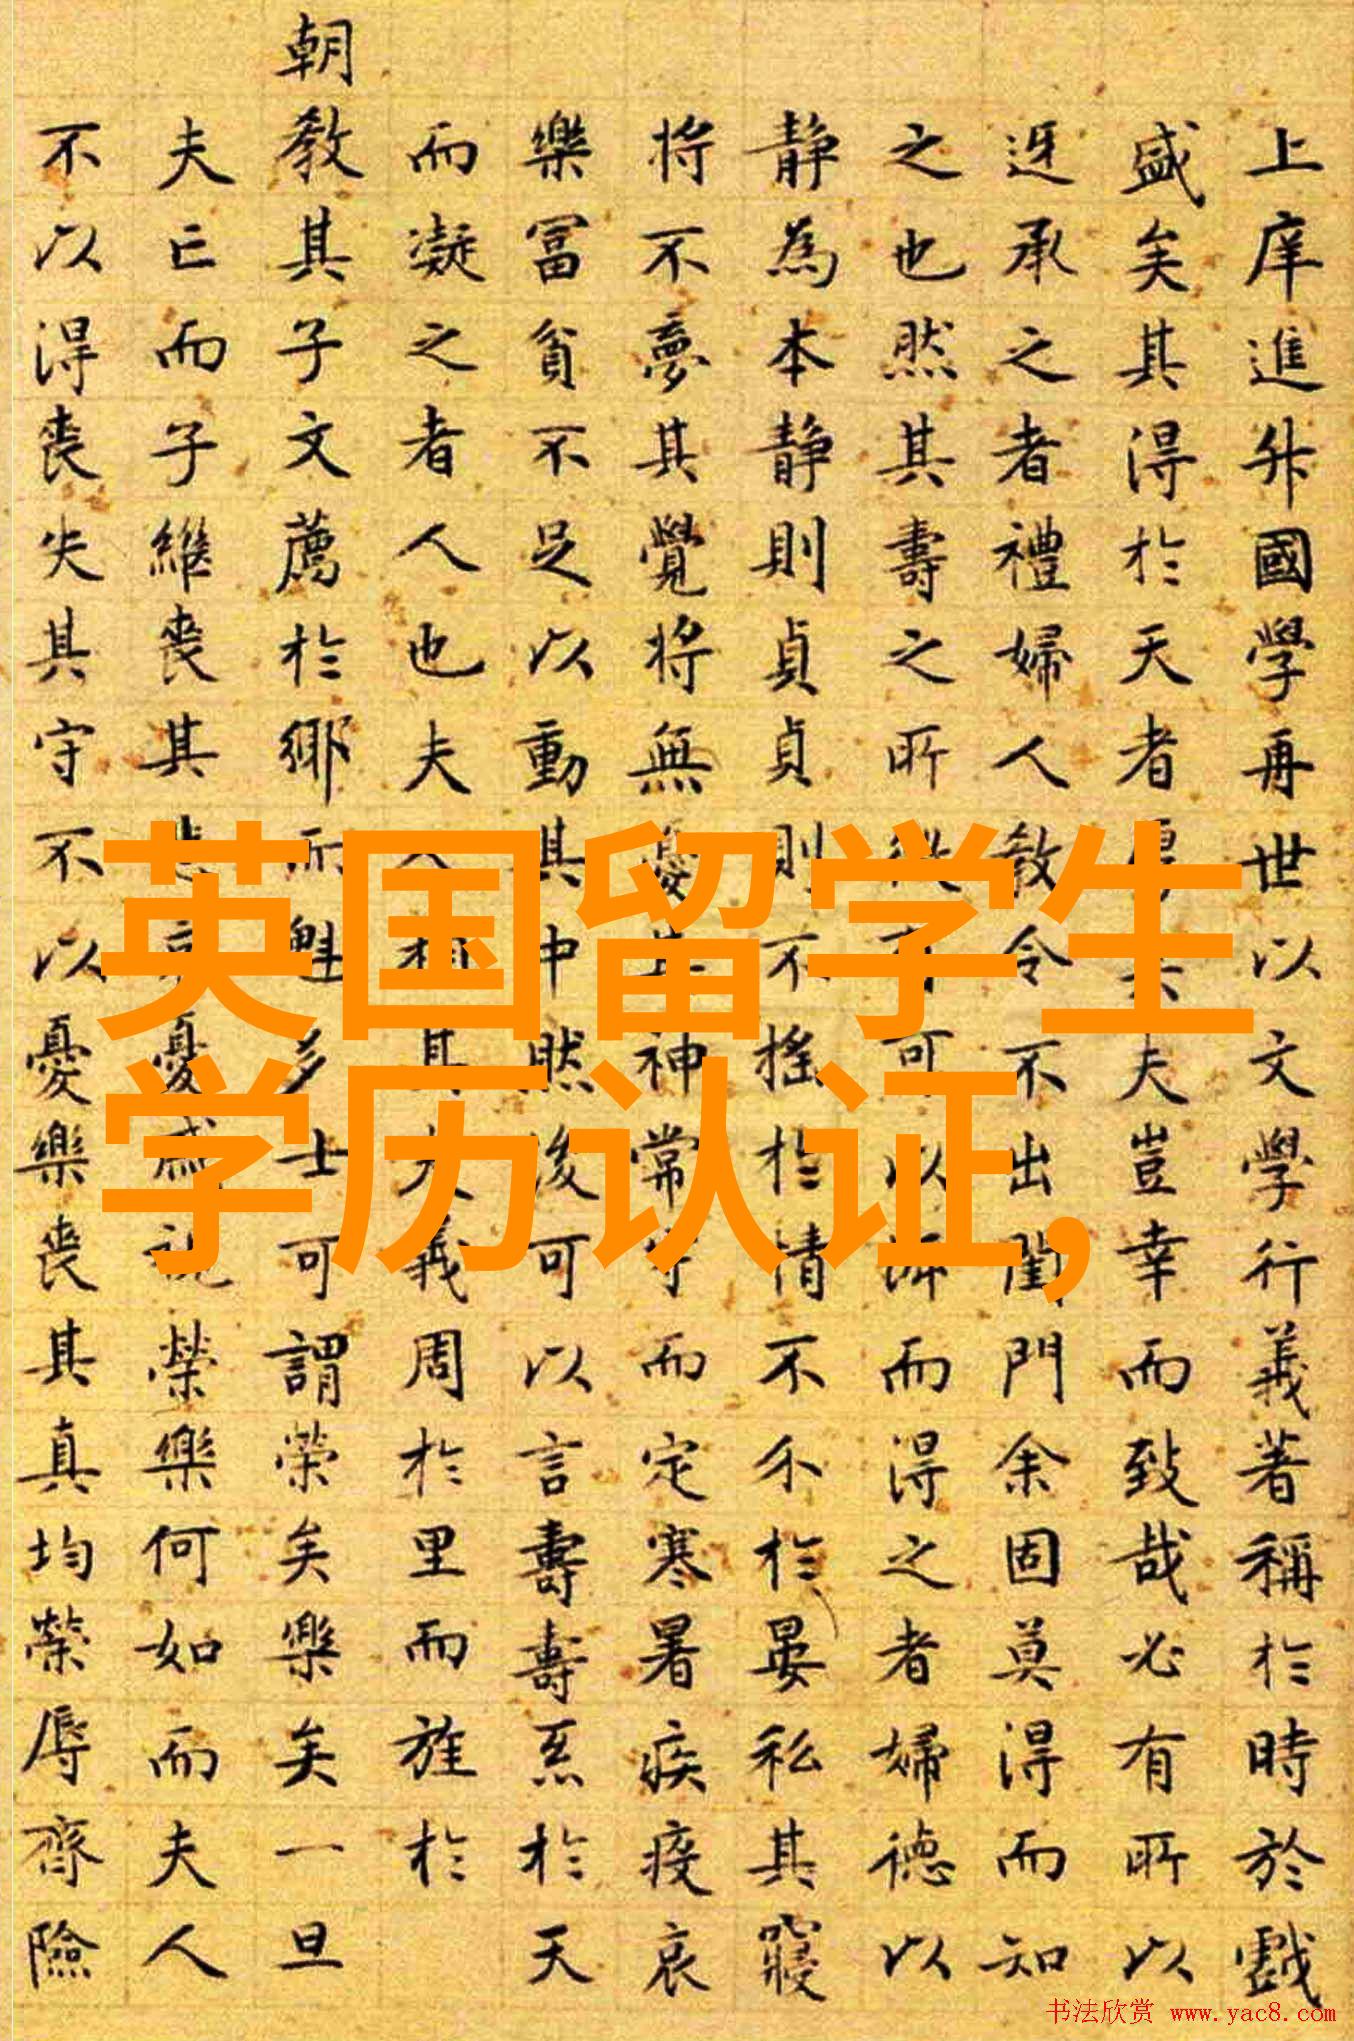 上庠進升國學再世以文學行義著稱於時於戲
盛矣其得於天者夫豈幸而致哉必有所以
迓承之者禮婦人教令不出閨門余固莫得而知
之也然其壽之所可以而得之者婦德以
靜為本靜則貞貞則不搖於情不于晏私其寢
將不夢其覺將無神常而定寒暑疾疫哀
樂富貧不足以動其中然後可以言壽壽烝於天
而凝之者人也夫其夫義周於里而旌於
朝教其子文薦於鄉而魁多士可謂榮矣樂矣一旦
夫亡而子繼喪其憂戚榮樂何如而夫人
不以得喪失其守不以憂樂喪其真均榮辱齊險
英国留学生
学历认证,
书法欣赏 www.yac8.com